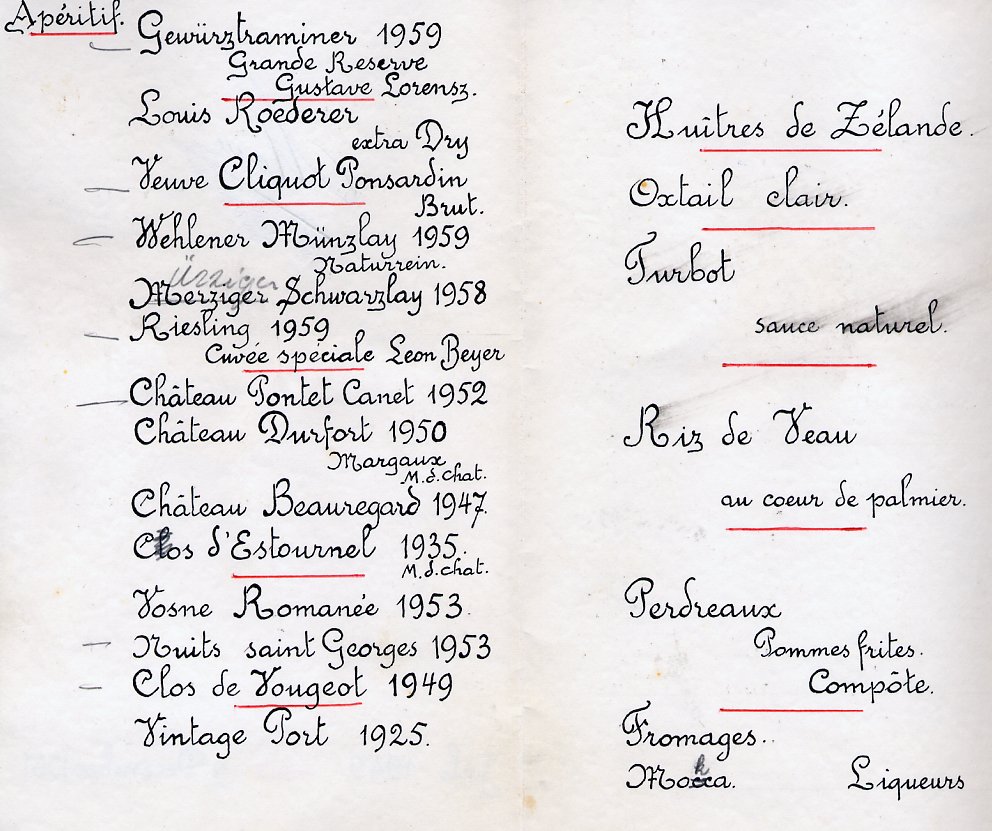 Apéritif.
Gewürztraminer 1959
Grande Reserve
Gustave Lorensz.
Louis Roederer
extra Dry
Veuve Cliquot Ponsardin
Brut.
Wehlener Münzlay 1959
Naturrein.
Ürziger
Merziger Schwarzlay 1958
Riesling 1959
Cuvée spéciale Leon Beyer
Château Pontet Canet 1952
Château Durfort 1950
Margaux
M.d.chat.
Château Beauregard 1947.
Clos d'Estournel 1935.
M.d.chat.
Vosne Romanée 1953.
Nuits saint Georges 1953
Clos de Vougeot 1949
Vintage Port 1925.
Huîtres de Zélande.
Oxtail clair.
Turbot
sauce naturel.
Riz de Veau
au coeur de palmier.
Perdreaux
Pommes frites.
Compôte.
Fromages..
Mokka. Liqueurs